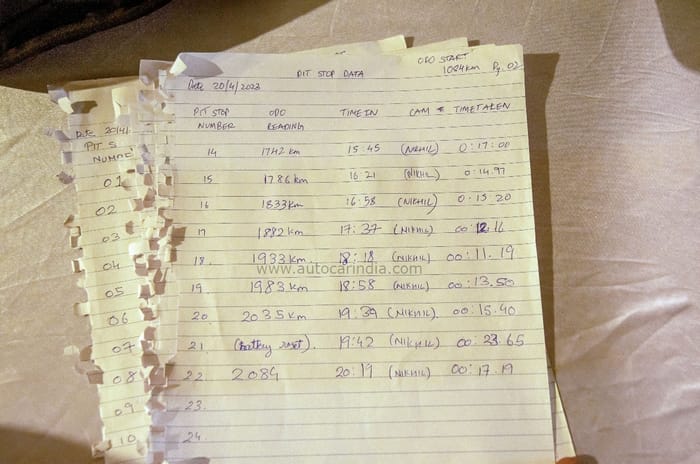 ODO START
PIT STOP DATA 1084km Pg. 02
Date 20/4/2023
PIT STOP ODO TIME IN CAM TIME TAKEN
NUMBER READING
14 1742 km 15:45 (NIKHIL) 0:17:00
15 1786 km 16 21 (NIKHIL) 0:14.97
16 1833 km 16:58 (NIKHIL) 0:13 20
17 1882 km 17:37 (NIKHIL) 00:12.16
18. 1933 km. 18:18 (NIKHIL) 00:11.19
www.autocarindia.com
19 1983 km 18:58 (NIKHIL) 00:13.50
20 2035 km 19:39 (NIKHIL) 00:15.40
21 19:42 (NIKHIL) 00:23.65
22. 2084 20:19 (NIKHIL) 00:17.19
23.
24.
Date 20/4/
PIT S
01
02
03
04
05
06
07
08
09
10